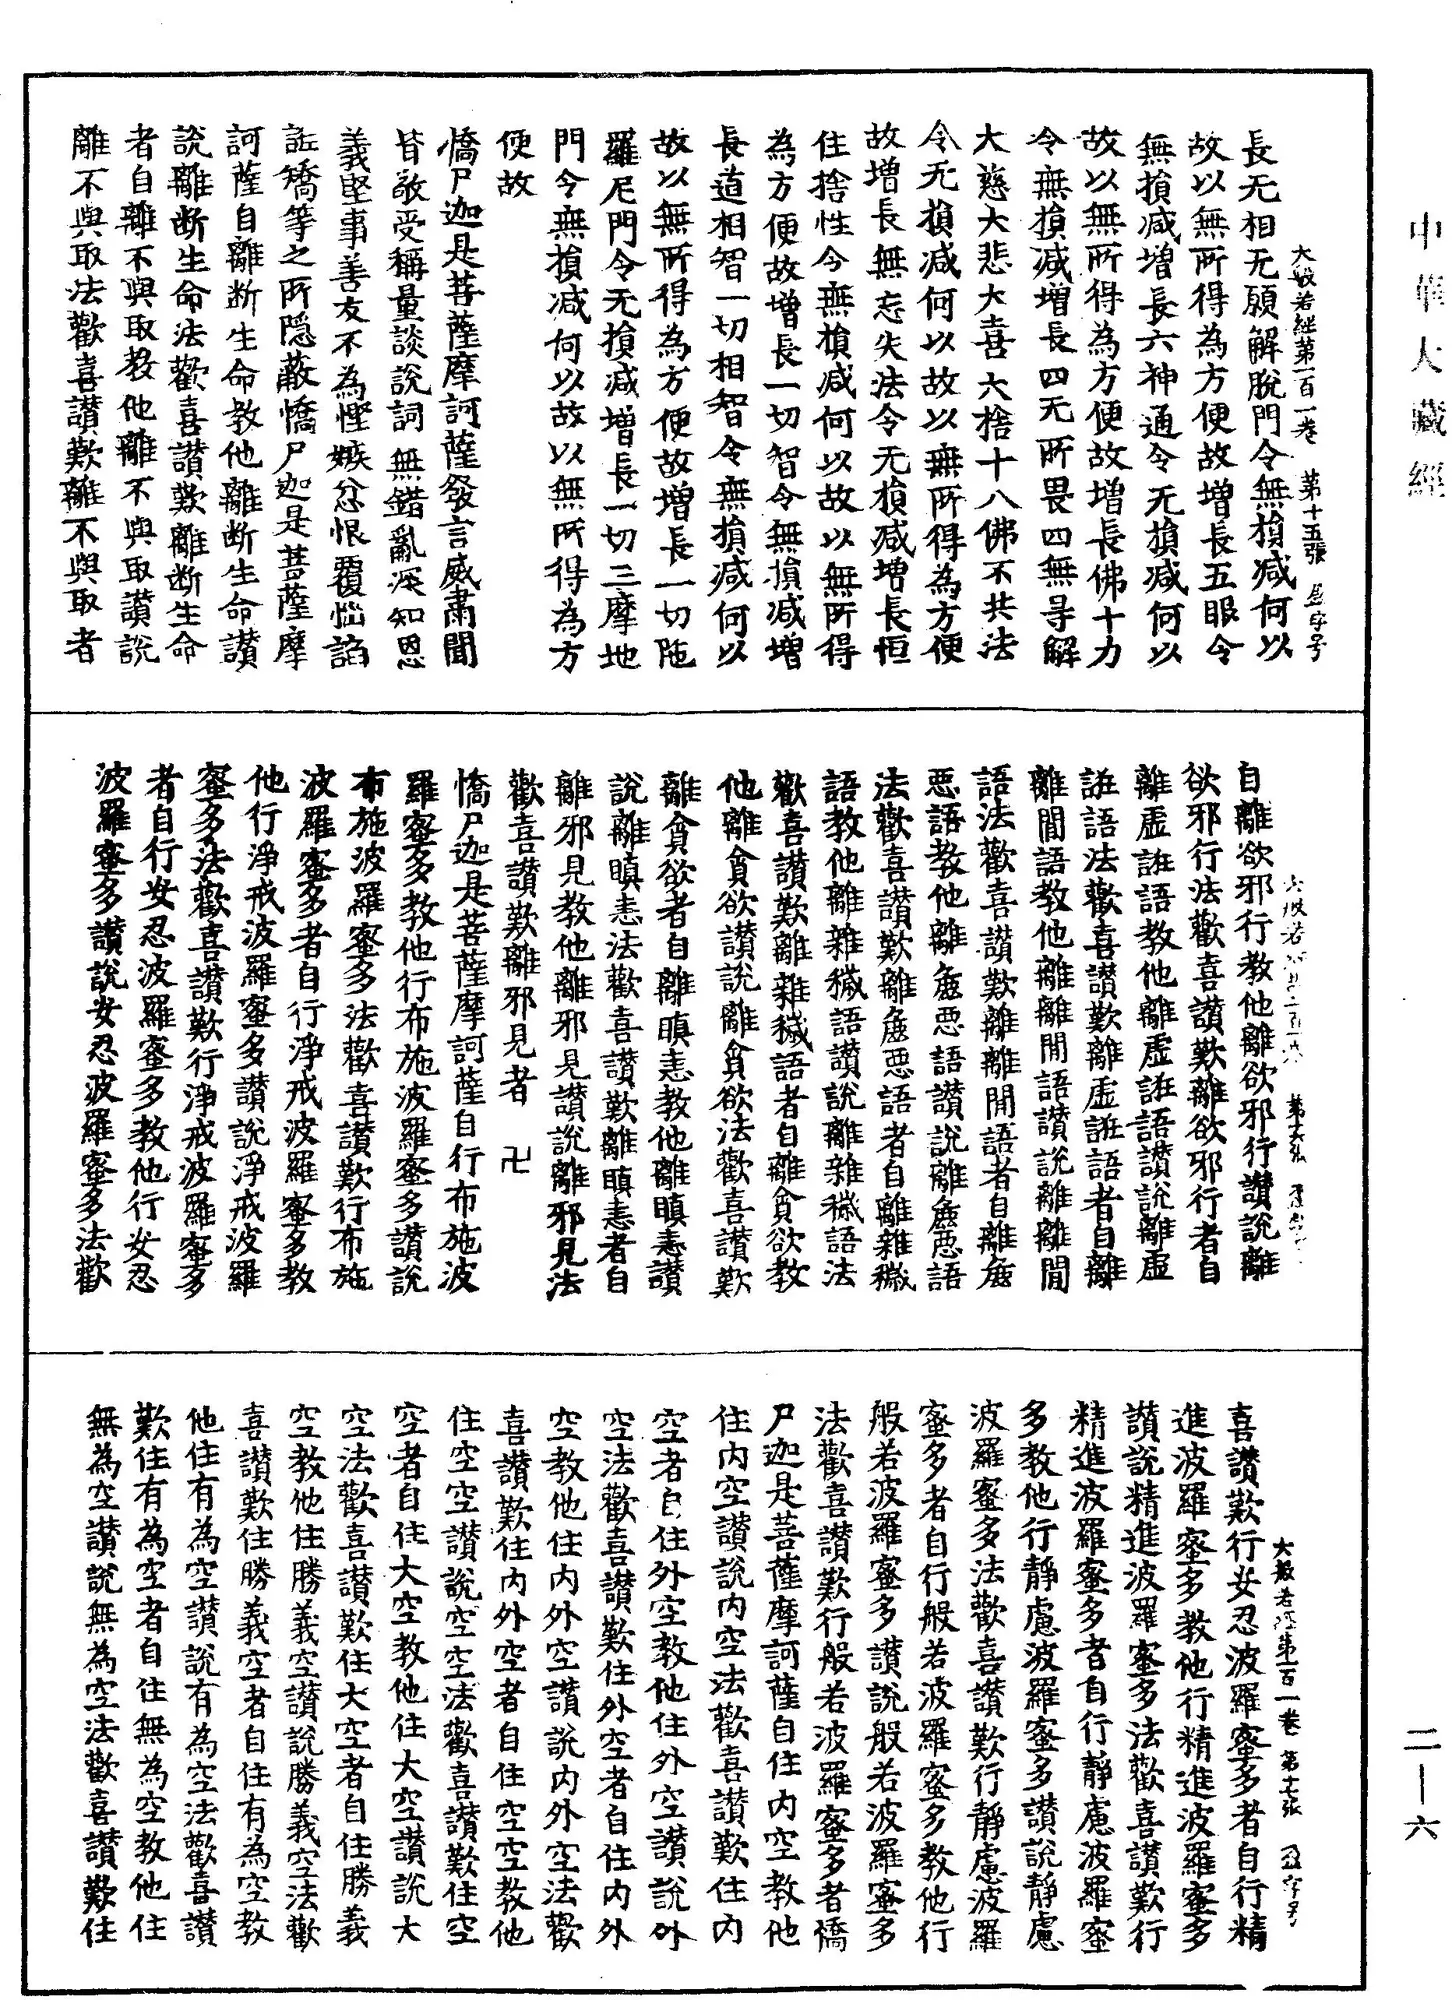 中華大藏經
大般若經第一百一卷 第十五張 盈字号
長无相无願解脫門令無損減何以
故以無所得為方便故增長五眼令
無損減增長六神通令无損減何以
故以無所得為方便故增長佛十力
令無損減增長四无所畏四無㝵解
大慈大悲大喜大捨十八佛不共法
令无損減何以故以無所得為方便
故增長無忘失法令无損減增長恒
住捨性令無損減何以故以無所得
為方便故增長一切智令無損減增
長道相智一切相智令無損減何以
故以無所得為方便故增長一切陁
羅尼門令无損減增長一切三摩地
門令無損減何以故以無所得為方
便故
憍尸迦是菩薩摩訶薩發言威肅聞
皆敬受稱量談說詞無錯亂深知恩
義堅事善友不為慳嫉忿恨覆惱諂
誑矯等之所隱蔽憍尸迦是菩薩摩
訶薩自離断生命教他離断生命讃
說離断生命法歡喜讃歎離断生命
者自離不與取教他離不與取讃說
離不與取法歡喜讃歎離不與取者
自離欲邪行教他離欲邪行讃說離
欲邪行法歡喜讃歎離欲邪行者自
離虛誑語教他離虛誑語讃說離虛
誑語法歡喜讃歎離虛誑語者自離
離間語教他離離間語讃說離離間
語法歡喜讃歎離離間語者自離麁
惡語教他離麁惡語讃說離麁惡語
法歡喜讃歎離麁惡語者自離雜穢
語教他離雜穢語讃說離雜穢語法
歡喜讃歎離雜穢語者自離貪欲教
他離貪欲讃說離貪欲法歡喜讃歎
離貪欲者自離瞋恚教他離瞋恚讃
說離瞋恚法歡喜讃歎離瞋恚者自
離邪見教他離邪見讃說離邪見法
歡喜讃歎離邪見者 卍
憍尸迦是菩薩摩訶薩自行布施波
羅蜜多教他行布施波羅蜜多讃說
布施波羅蜜多法歡喜讃歎行布施
波羅蜜多者自行淨戒波羅蜜多教
他行淨戒波羅蜜多讃說淨戒波羅
蜜多法歡喜讃歎行淨戒波羅蜜多
者自行安忍波羅蜜多教他行安忍
波羅蜜多讃說安忍波羅蜜多法歡
大般若經第一百一卷 第十七張 盈字号
喜讃歎行安忍波羅蜜多者自行精
進波羅蜜多教他行精進波羅蜜多
讃說精進波羅蜜多法歡喜讃歎行
精進波羅蜜多者自行靜慮波羅蜜
多教他行靜慮波羅蜜多讃說靜慮
波羅蜜多法歡喜讃歎行靜慮波羅
蜜多者自行般若波羅蜜多教他行
般若波羅蜜多讃說般若波羅蜜多
法歡喜讃歎行般若波羅蜜多者憍
尸迦是菩薩摩訶薩自住内空教他
住内空讃說内空法歡喜讃歎住内
空者自住外空教他住外空讃說外
空法歡喜讃歎住外空者自住内外
空教他住内外空讃說内外空法歡
喜讃歎住内外空者自住空空教他
住空空讃說空空法歡喜讃歎住空
空者自住大空教他住大空讃說大
空法歡喜讃歎住大空者自住勝義
空教他住勝義空讃說勝義空法歡
喜讃歎住勝義空者自住有為空教
他住有為空讃說有為空法歡喜讃
歎住有為空者自住無為空教他住
無為空讃說無為空法歡喜讃歎住
二—六